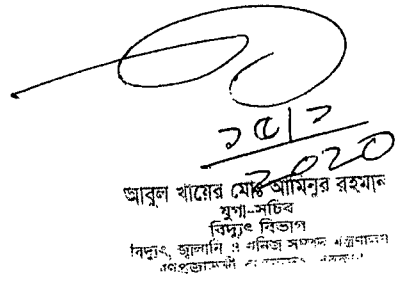 ১৫/১
2020
আবুল খায়ের মোঃ আমিনুর রহমান
যুগ্ম-সচিব
বিদ্যুৎ বিভাগ
বিদ্যুৎ, জ্বালানি ও খনিজ সম্পদ মন্ত্রণালয়
গণপ্রজাতন্ত্রী বাংলাদেশ সরকার